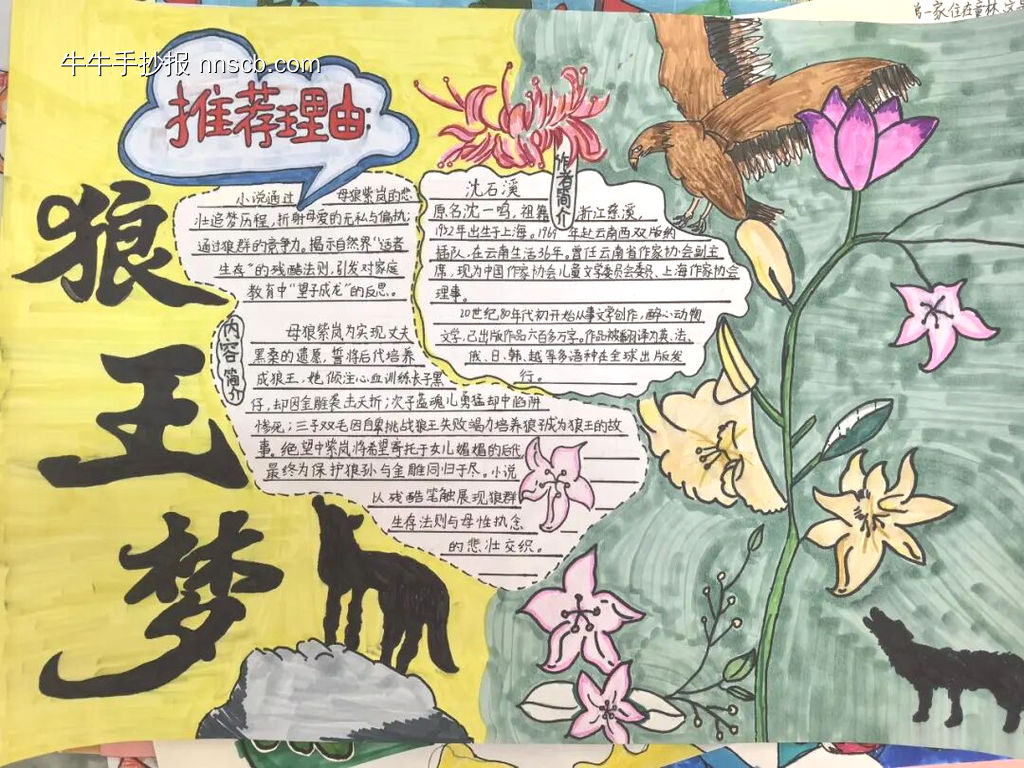 牛牛手抄报 nnscb.com
推荐理由:
狼王梦
小说通过 母狼紫岚的悲
壮追梦历程,折射母爱的无私与偏执;
通过狼群的竞争力。揭示自然界"适者
生存"的残酷法则,引发对家庭
教育中"望子成龙"的反思。
内容简介
母狼紫岚为实现丈夫
黑桑的遗愿,誓将后代培养
成狼王,她倾注心血训练长子黑
仔,却因金雕袭击夭折;次子蓝魂儿勇猛却中陷阱
惨死;三子双毛因自卑挑战狼王失败竭力培养狼子成为狼王的故
事。绝望中紫岚将希望寄托于女儿媚媚的后代
最终为保护狼孙与金雕同归于尽。小说
以残酷笔触展现狼群
生存法则与母性执念
的悲壮交织。
作者简介
沈石溪
原名沈一鸣,祖籍 浙江慈溪,
1952年出生于上海。1969 年赴云南西双版纳
插队,在云南生活36年。曾任云南省作家协会副主
席,现为中国作家协会儿童文学委员会委员、上海作家协会
理事。
20世纪80年代初开始从事文学创作,醉心动物
文学,已出版作品六百多万字。作品被翻译为英、法、
俄、日、韩、越等多语种在全球出版发
行。